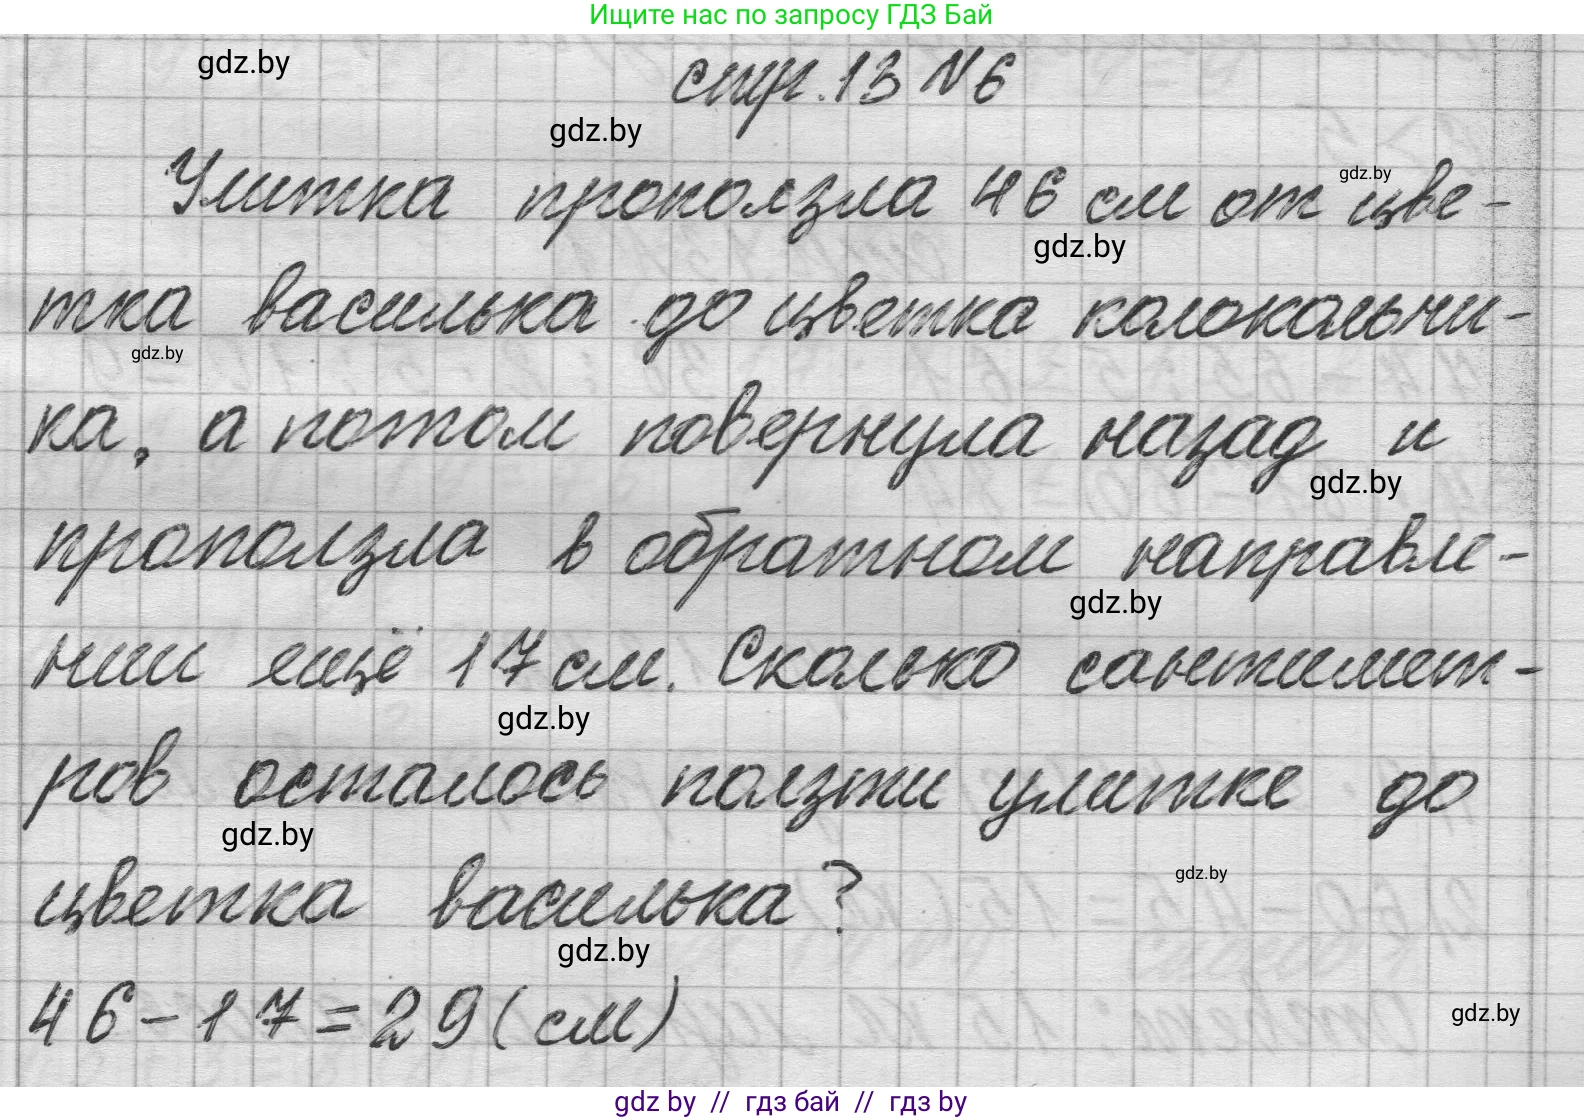 Ищите нас по запросу ГДЗ Бай
gdz.by
стр. 13 №6
gdz.by
Улитка проползла 46 см от цве-
gdz.by
gdz.by
тка василька до цветка колокольчи-
gdz.by
ка, а потом повернула назад и
gdz.by
проползла в обратном направле-
gdz.by
нии ещё 17 см. Сколько сантимет-
gdz.by
ров осталось ползти улитке до
gdz.by
цветка василька?
gdz.by
gdz.by
46-17=29(см)
gdz.by
gdz by // гдз бай // гдз by